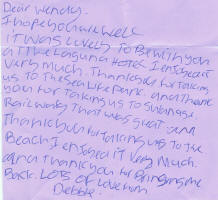 Dear Wendy.
I hope you are well
it was Lovely To Be with you
at The Laguna Hotel I enjoyed it
very Much. Thank you for taking
us to The Sea Life Park. and Thank
you for Taking us To Swanage.
Railway That was great and
Thank you for Talking us To The
Beach I enjoyed it very Much.
and Thank you for Bringing me
Back. LOTS OF Love from
Debbie.